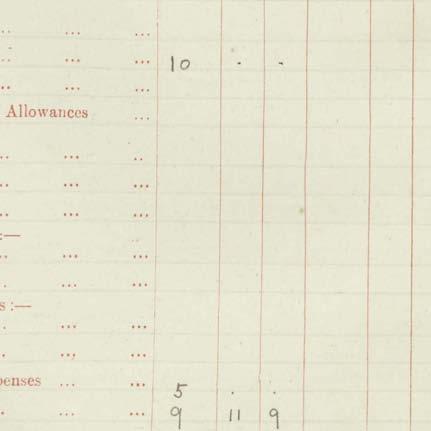 .. ... ...
.. ... ... 10 . .
.. ... ...
Allowances ...
.. ... ..
.. ... ...
.. ... ...
:—
.. ... ...
. ... ...
s :—
. ... ...
. ... ...
penses ... ... 5 . .
. ... ... 9 11 9